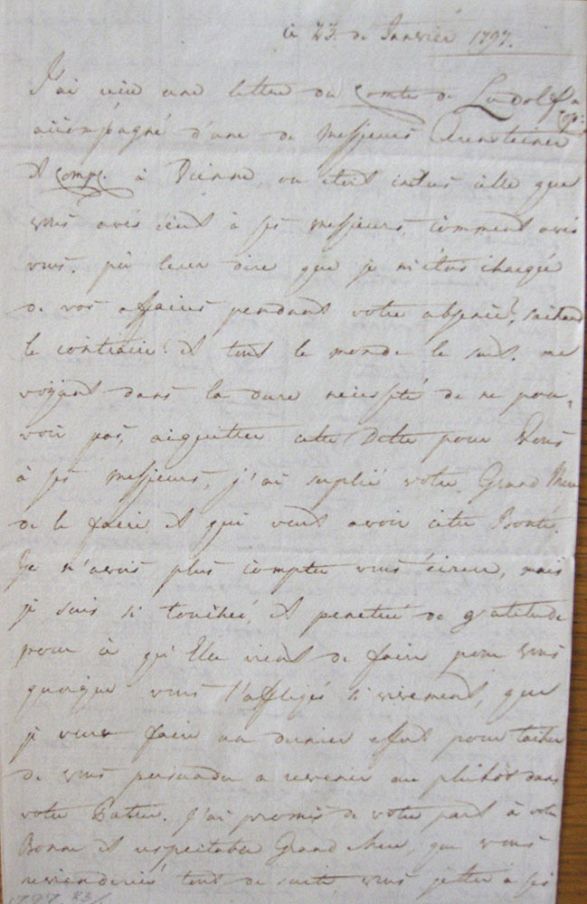 ce 23 de Janvier 1797.
J'ai recu une lettre du Comte de Ludolf
accompagné d'une de Messieurs
et comp. à Vienne, ou étoit inclus celle que
vous avés écrit à ses Messieurs, comment avés
vous pû leur dire que je m'étois chargée
de vos affaires pendant votre absence,
le contraire et tout le monde le sait. me
voyant dans la dure necessité de ne pou-
voir pas aiquitter cette Dette pour Vous
à ses Messieurs, j'ai suplié votre Grand Mere
de le faire et qui veut avoir cette Bonté,
Je n'avois plus compter vous écrire, mais
je suis si touchée, et penetré de gratitude
pour ce qu'Elle vient de faire pour vous
quoique vous l'affligés si vivement, que
je veux faire un dernier effort pour tacher
de vous persuader a revenir au plutôt dans
votre Patrie. J'ai promis de votre part à votre
Bonne et respectable Grand Mere, que vous
reviendriés tout de suite vous jetter à ses
1797 23/1